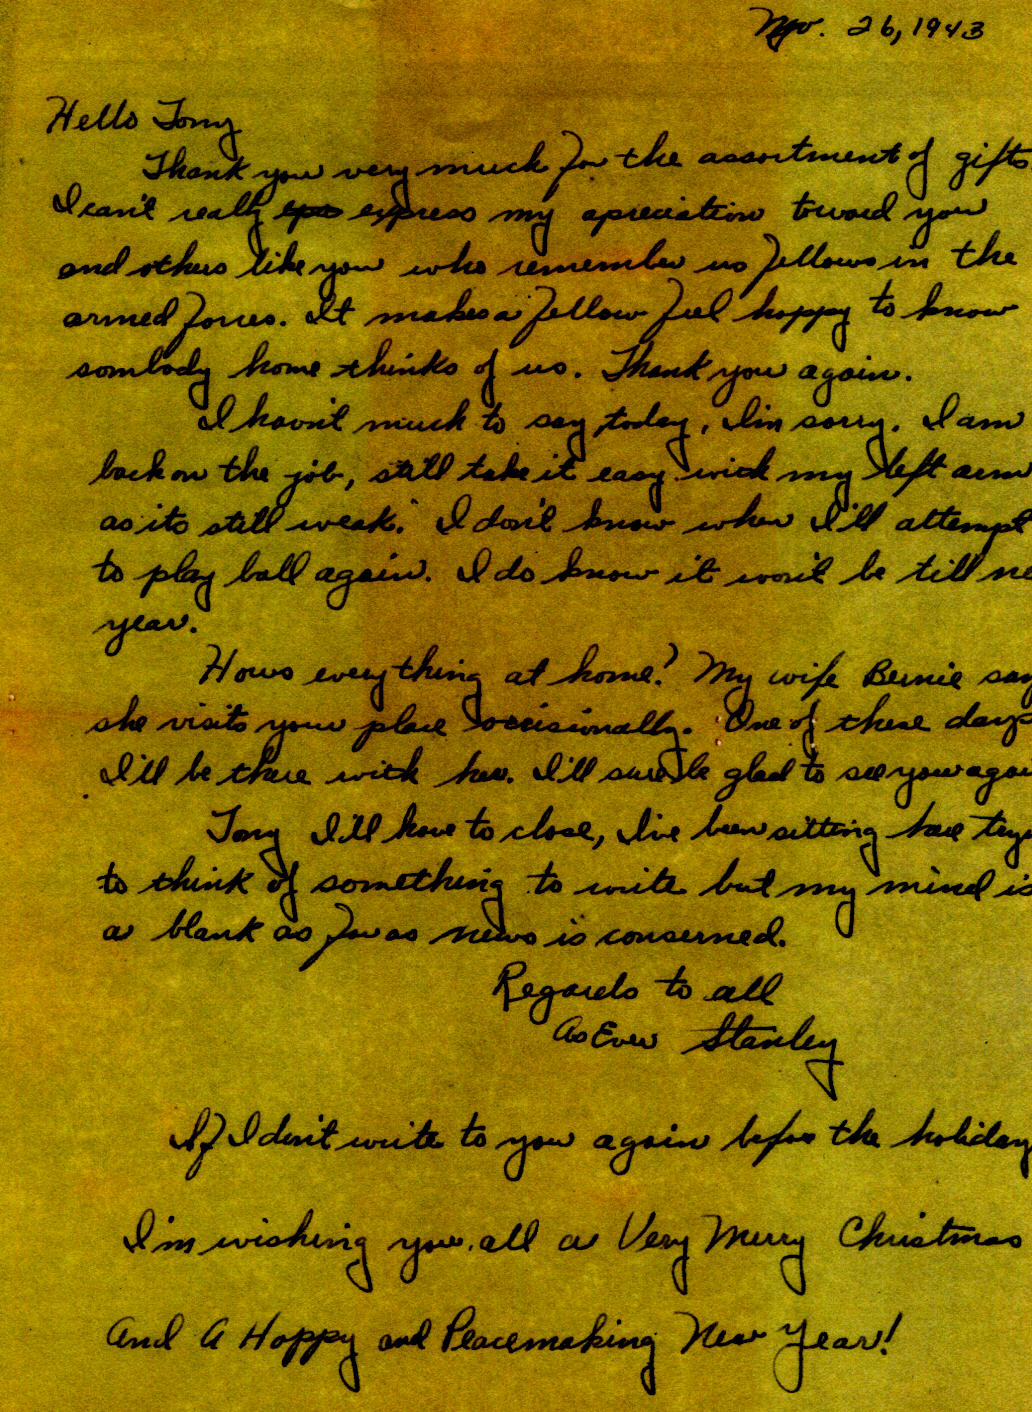 Nov. 26, 1943
Hello Tony
Thank you very much for the assortment of gifts
I can't really express my apreciation toward you
and others like you who remember us fellows in the
armed forces. It makes a fellow feel happy to know
sombody home thinks of us. Thank you again.
I havn't much to say today, I'm sorry. I am
back on the job, still take it easy with my left arm
as its still weak. I don't know when I'll attempt
to play ball again. I do know it won't be till ne
year.
Hows everything at home? My wife Bernie say
she visits your place occisionally. One of these days
I'll be there with her. I'll sure be glad to see you agai
Tony I'll have to close, I've been sitting here
to think of something to write but my mind is
a blank as far as news is conserned.
Regards to all
As Ever Stanley
If I don't write to you again before the holiday
I'm wishing you all a Very Merry Christmas
And A Happy and Peacemaking New Year!